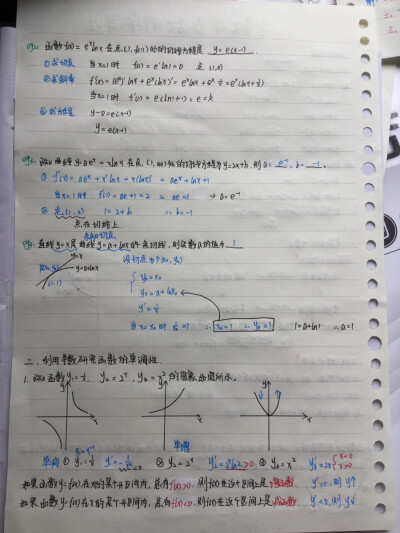 eg1. 函数f(x)=eˣlnx 在点(1,f(1))处的切线方程是 y=e(x-1).
①求切点 当x=1时 f(1)=e¹ln1=0 点(1,0)
②求斜率 f'(x)=(eˣ)'lnx+eˣ(lnx)'=eˣlnx+eˣ·1/x=eˣ(lnx+1/x)
当x=1时 f'(1)=e(ln1+1)=e=k
③求方程 y-0=e(x-1)
y=e(x-1)
eg2. 已知曲线y=aeˣ+xlnx 在点(1,ae)处的切线方程为y=2x+b, 则a=e⁻¹, b=-1.
① f'(x)=aeˣ+x'lnx+x(lnx)'=aeˣ+lnx+1
当x=1时 f'(1)=ae+1=2 ∴ae=1 → a=e⁻¹
② 点(1,1) 1=2+b ∴b=-1
点在切线上
eg3. 直线y=x是曲线y=a+lnx的一条切线, 则实数a的值为 1
y=x
y=a+lnx
(1,1)
设切点为P(x₀,y₀)
y₀=x₀
y₀=a+lnx₀
y'=1/x
当x=x₀时 1/x₀=1 ∴x₀=1 ∴y₀=1 1=a+ln1 ∴a=1
二、利用导数研究函数的单调性.
1. 已知函数y₁=1/x, y₂=2ˣ, y₃=x²的图象如图所示.
y x y x y x
单减 ① y₁=1/x y₁'=-1/x²<0 单增 ② y₂=2ˣ y₂'=2ˣln2>0 ③ y₃=x² y₃'=2x {x<0 x>0
如果函数y=f(x)在x的某个开区间内, 总有f'(x)>0, 则f(x)在这个区间上是增函数 y'>0, 则y↑
如果函数y=f(x)在x的某个开区间内, 总有f'(x)<0, 则f(x)在这个区间上是减函数 y'<0, 则y↓